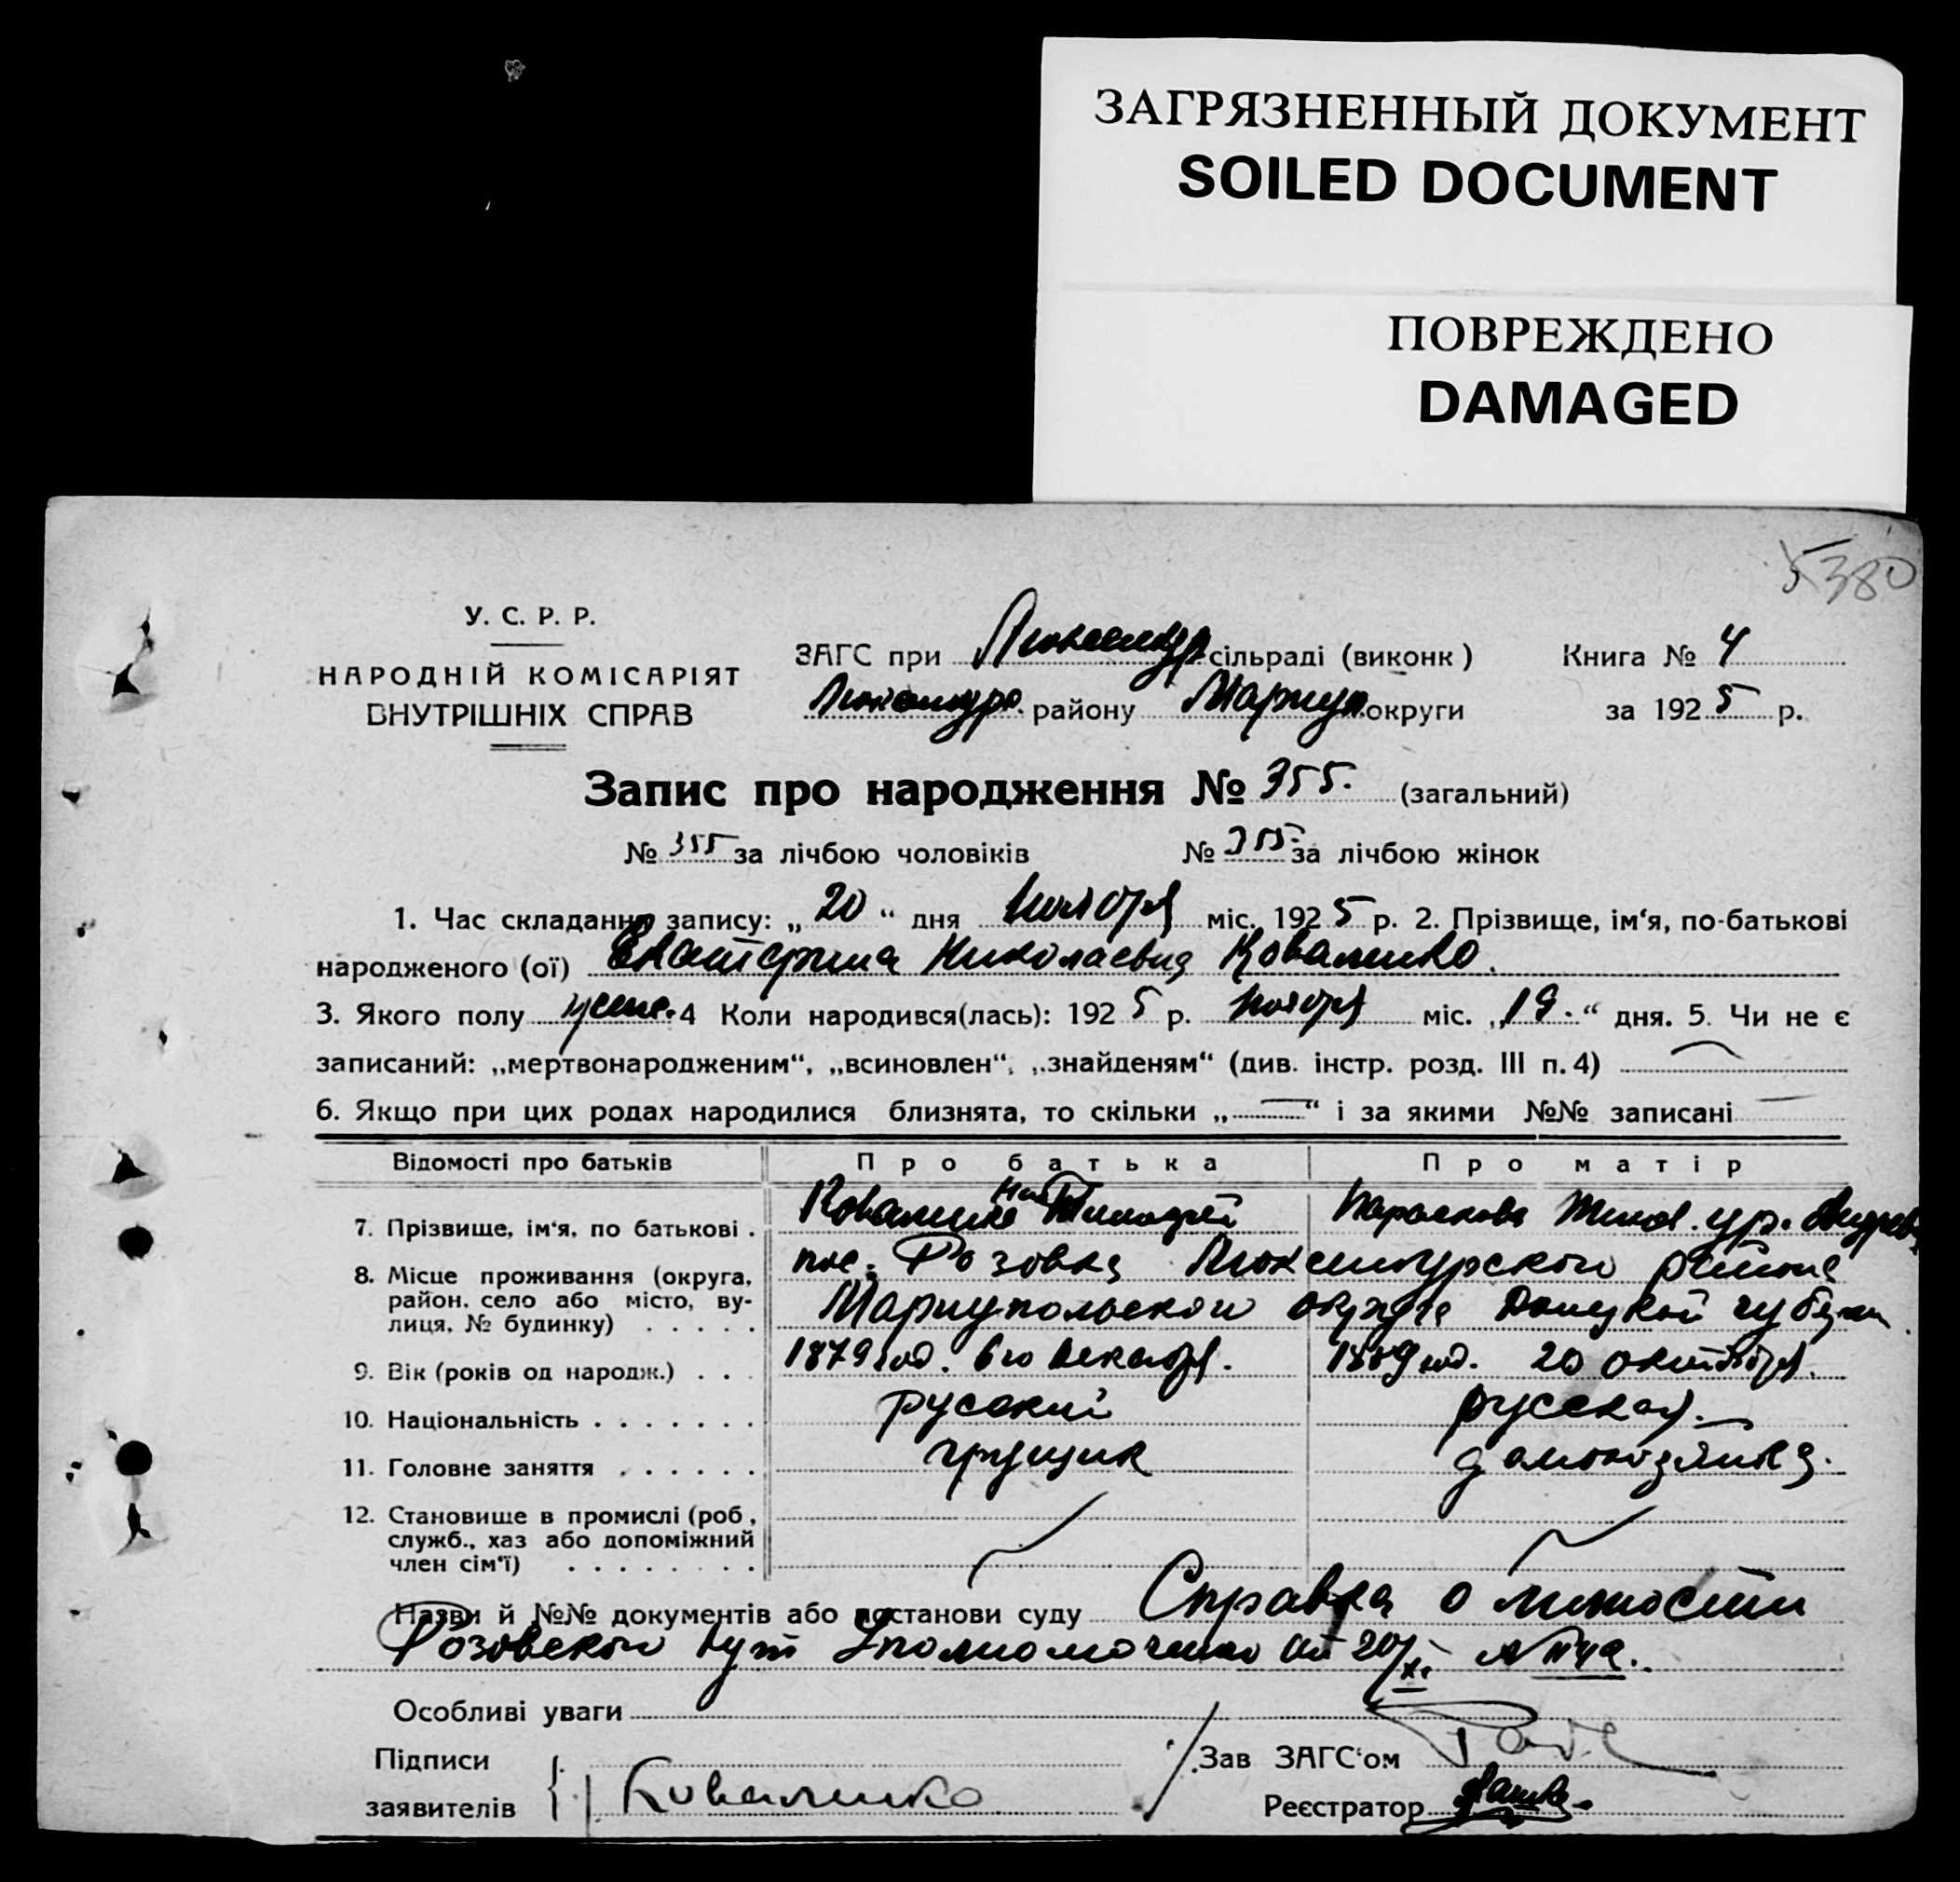 ЗАГРЯЗНЕННЫЙ ДОКУМЕНТ
SOILED DOCUMENT
ПОВРЕЖДЕНО
DAMAGED
5380
У. С. Р. Р.
НАРОДНІЙ КОМІСАРІЯТ
ВНУТРІШНІХ СПРАВ
ЗАГС при Люксембур сільраді (виконк)
Книга № 4
Люксембур. району Мариуп. округи
за 1925 р.
Запис про народження № 355. (загальний)
№ 355 за лічбою чоловіків № 355 за лічбою жінок
1. Час складання запису: „20“ дня ноября міс. 1925 р. 2. Прізвище, ім‘я, по-батькові
народженого (ої) Екатерина Николаевна Коваленко.
3. Якого полу женс. 4 Коли народився(лась): 1925 р. ноября міс. „19.“ дня. 5. Чи не є
записаний: „мертвонародженим“, „всиновлен“, „знайденям“ (див. інстр. розд. III п. 4)
6. Якщо при цих родах народилися близнята, то скільки „ “ і за якими №№ записані
Відомості про батьків Про батька Про матір
7. Прізвище, ім‘я, по батькові . Коваленко Парасковья
8. Місце проживання (округа, район. село або місто, вулиця, № будинку) . . . . . пос. Розовка Люксембургского района
Мариупольской округи Донецкой губерн.
9. Вік (років од народж.) . . . 1879 год. 6го декабря. 1889 год. 20 октября.
10. Національність . . . . . . . русский русская.
11. Головне заняття . . . . . . грущик домохозяйка.
12. Становище в промислі (роб, служб., хаз або допоміжний член сім‘ї) . . . . . . . .
Назви й №№ документів або постанови суду Справка о личности
Розовского Уполномоченно от 20/XI №
Особливі уваги
Підписи
заявителів Коваленко
Зав ЗАГС‘ом
Реєстратор